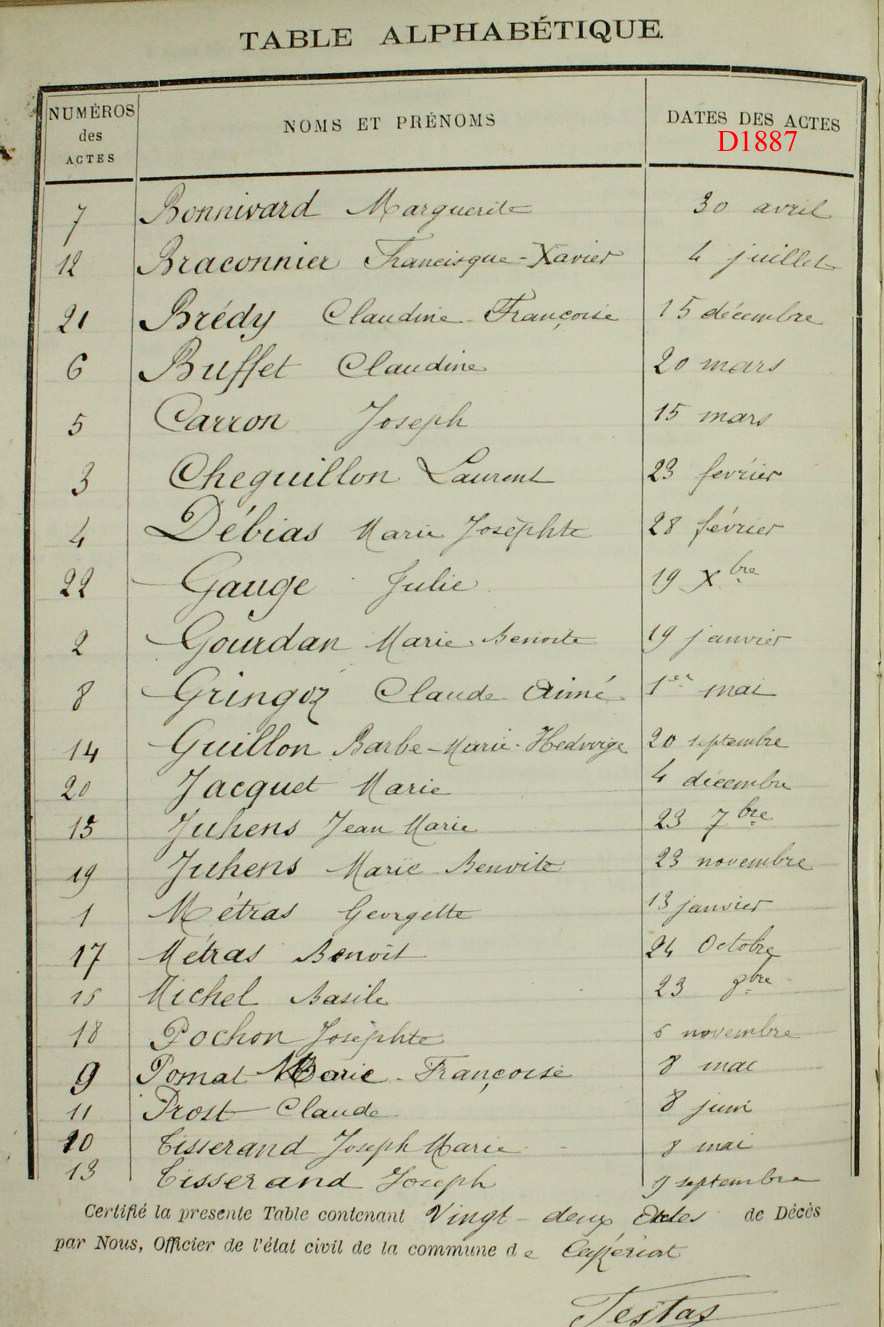 TABLE ALPHABÉTIQUE.
NUMÉROS des ACTES NOMS ET PRÉNOMS DATES DES ACTES
D1887
7 Bonnivard Marguerite 30 avril
12 Braconnier Francisque-Xavier 4 juillet
21 Brédy Claudine Françoise 15 décembre
6 Buffet Claudine 20 mars
5 Carron Joseph 15 mars
3 Cheguillon Laurent 23 février
4 Débias Marie Josèphte 28 février
22 Gauge Julie 19 Xbre
2 Gourdan Marie Benoite 19 janvier
8 Gringoz Claude Aimé 1er mai
14 Guillon Barbe-Marie-Hedvige 20 septembre
20 Jacquet Marie 4 décembre
15 Juhens Jean Marie 23 7bre
19 Juhens Marie Benoite 23 novembre
1 Métras Georgette 13 janvier
17 Métras Benoît 24 Octobre
15 Michel Basile 23 9bre
18 Pochon Josèphte 6 novembre
9 Pomat Marie-Françoise 8 mai
11 Prost Claude 8 juin
10 Tisserand Joseph Marie 8 mai
13 Tisserand Joseph 9 septembre
Certifié la presente Table contenant Vingt-deux Actes de Décès
par Nous, Officier de l'état civil de la commune de
Testas